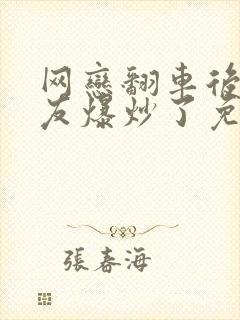 网戀翻車後
友爆炒了免
張春海